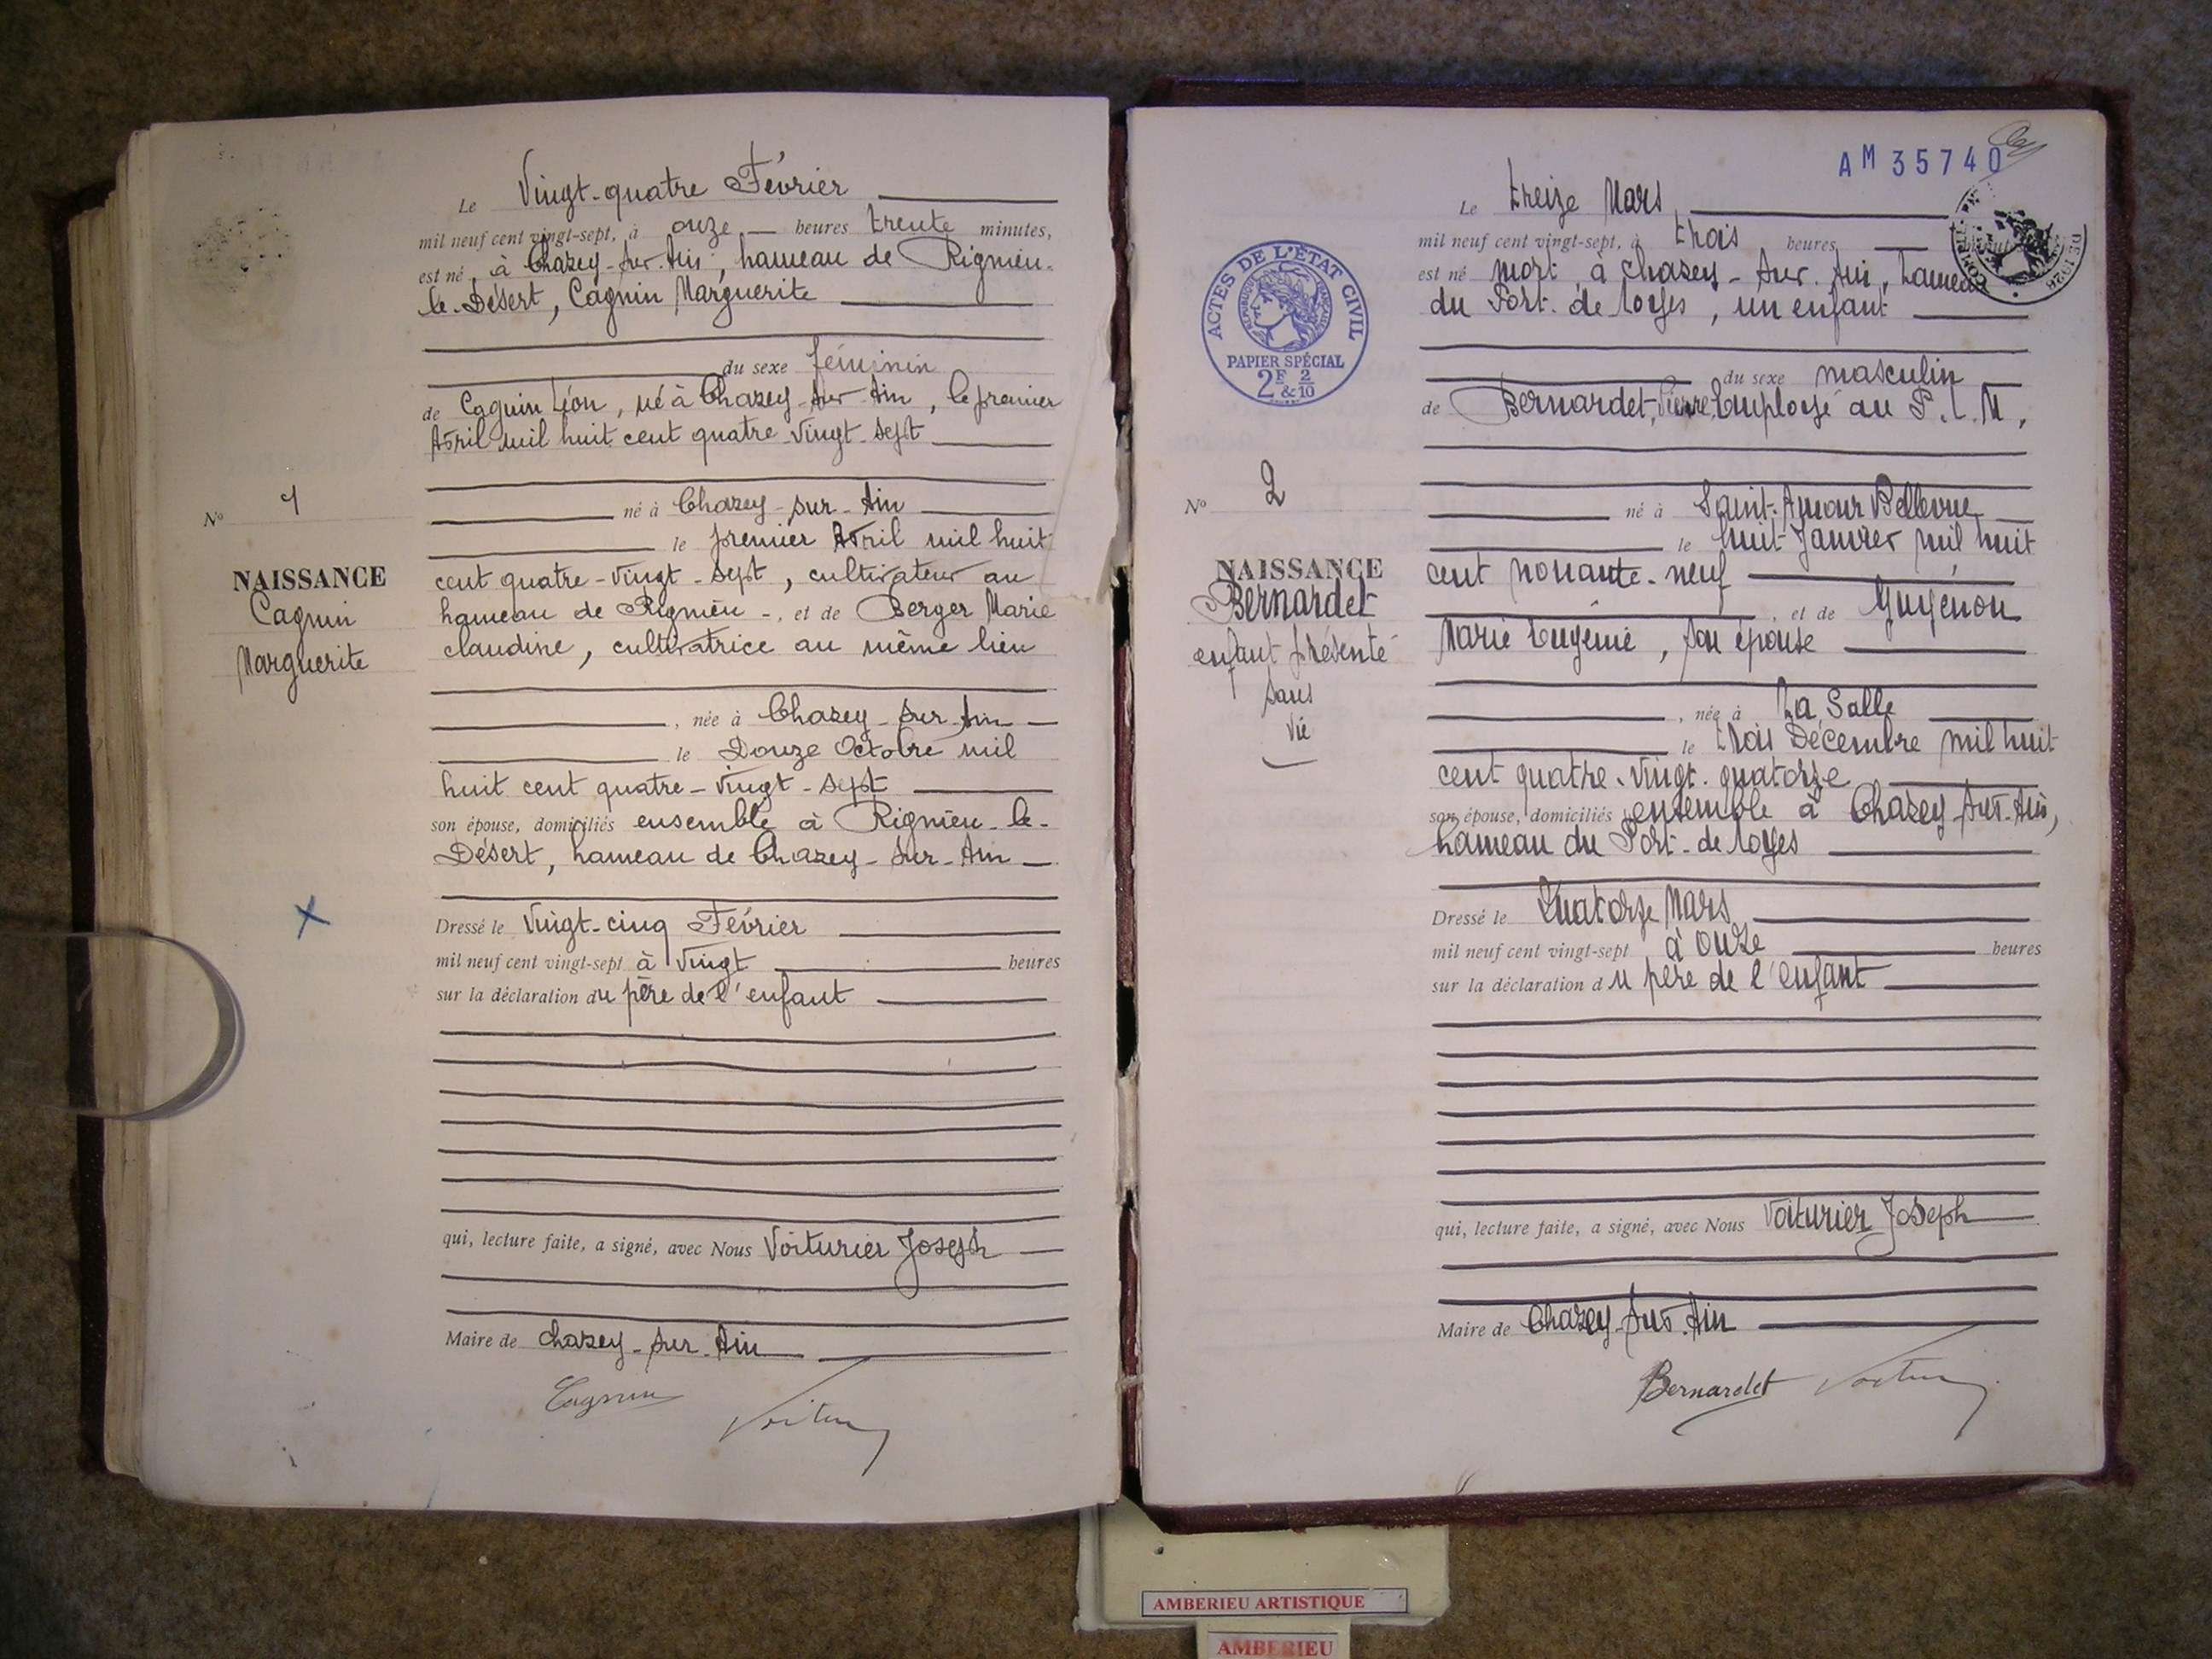 Le Vingt-quatre Février
mil neuf cent vingt-sept, à onze heures trente minutes,
est né, à Chazey-sur-Ain, hameau de Rignieu-
le-Désert, Cagnin Marguerite
du sexe féminin
de Cagnin Léon, né à Chazey-sur-Ain, le premier
Avril mil huit cent quatre-vingt-sept
né à Chazey-sur-Ain
le premier Avril mil huit
cent quatre-vingt-sept, cultivateur au
hameau de Rignieu -, et de Berger Marie
claudine, cultivatrice au même lieu
, née à Chazey-sur-Ain
le Douze Octobre mil
huit cent quatre-vingt-sept
son épouse, domiciliés ensemble à Rignieu-le-
Désert, hameau de Chazey-sur-Ain
Dressé le Vingt-cinq Février
mil neuf cent vingt-sept à Vingt heures
sur la déclaration du père de l'enfant
qui, lecture faite, a signé, avec Nous Voiturier Joseph
Maire de chazey-sur-Ain
Cagnin
N° 1
NAISSANCE
Cagnin
Marguerite
AM 35740
Le treize Mars
mil neuf cent vingt-sept, à trois heures
est né mort à chazey-sur-Ain, hameau
du Port-de-Loyes, un enfant
du sexe masculin
de Bernardet, Pierre, Employé au P.L.M,
né à Saint-Amour Bellevue
le huit Janvier mil huit
cent nonante-neuf
, et de Guyénon
Marie Eugénie, son épouse
, née à La Salle
le trois Décembre mil huit
cent quatre-vingt-quatorze
son épouse, domiciliés ensemble à Chazey-sur-Ain,
hameau du Port-de-Loyes
Dressé le Quatorze Mars
mil neuf cent vingt-sept à onze heures
sur la déclaration du père de l'enfant
qui, lecture faite, a signé, avec Nous Voiturier Joseph
Maire de Chazey-sur-Ain
Bernardet
ACTES DE L'ÉTAT CIVIL
RÉPUBLIQUE FRANÇAISE
PAPIER SPÉCIAL
2F & 2/10
N° 2
NAISSANCE
Bernardet
enfant présenté
sans
vie
AMBERIEU ARTISTIQUE
AMBERIEU